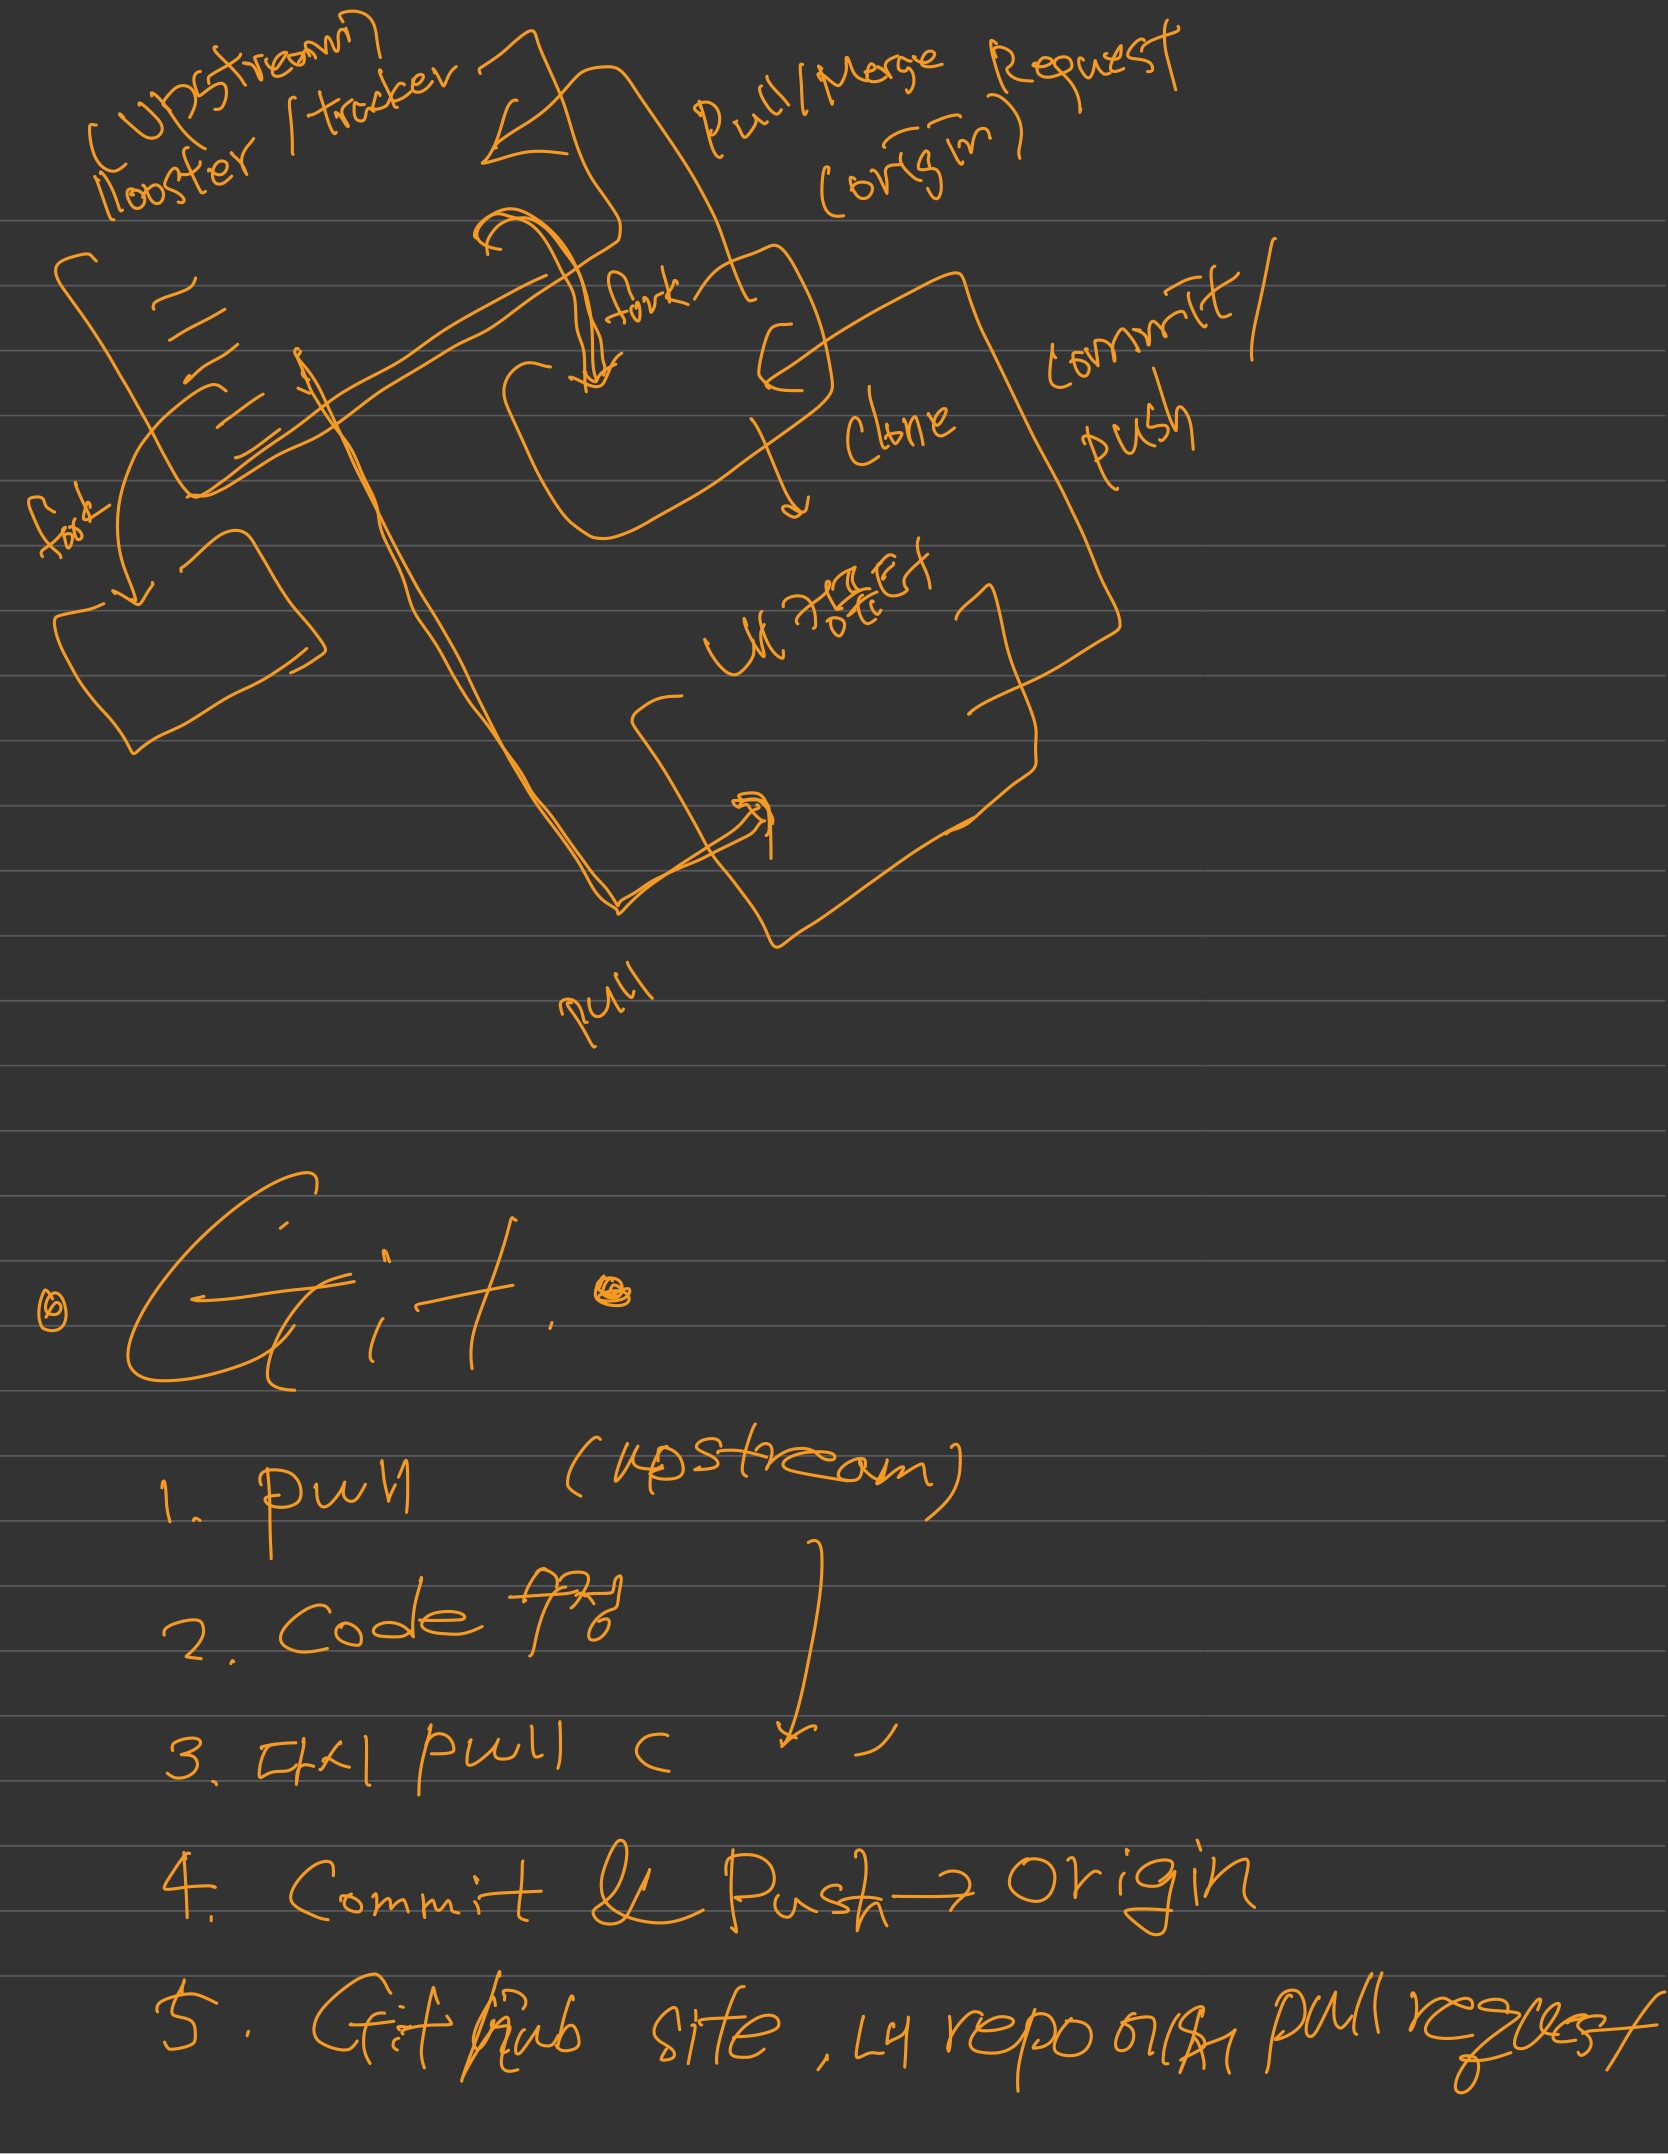 (Upstream)
master / tracker
Pull/Merge Request
(origin)
fork
Commit/
push
Clone
fork
내
pull
Git.
1. pull (upstream)
2. Code 작성
3. 다시 pull ( )
4. Commit & Push → origin
5. Github site, 내 repo에서 pull request